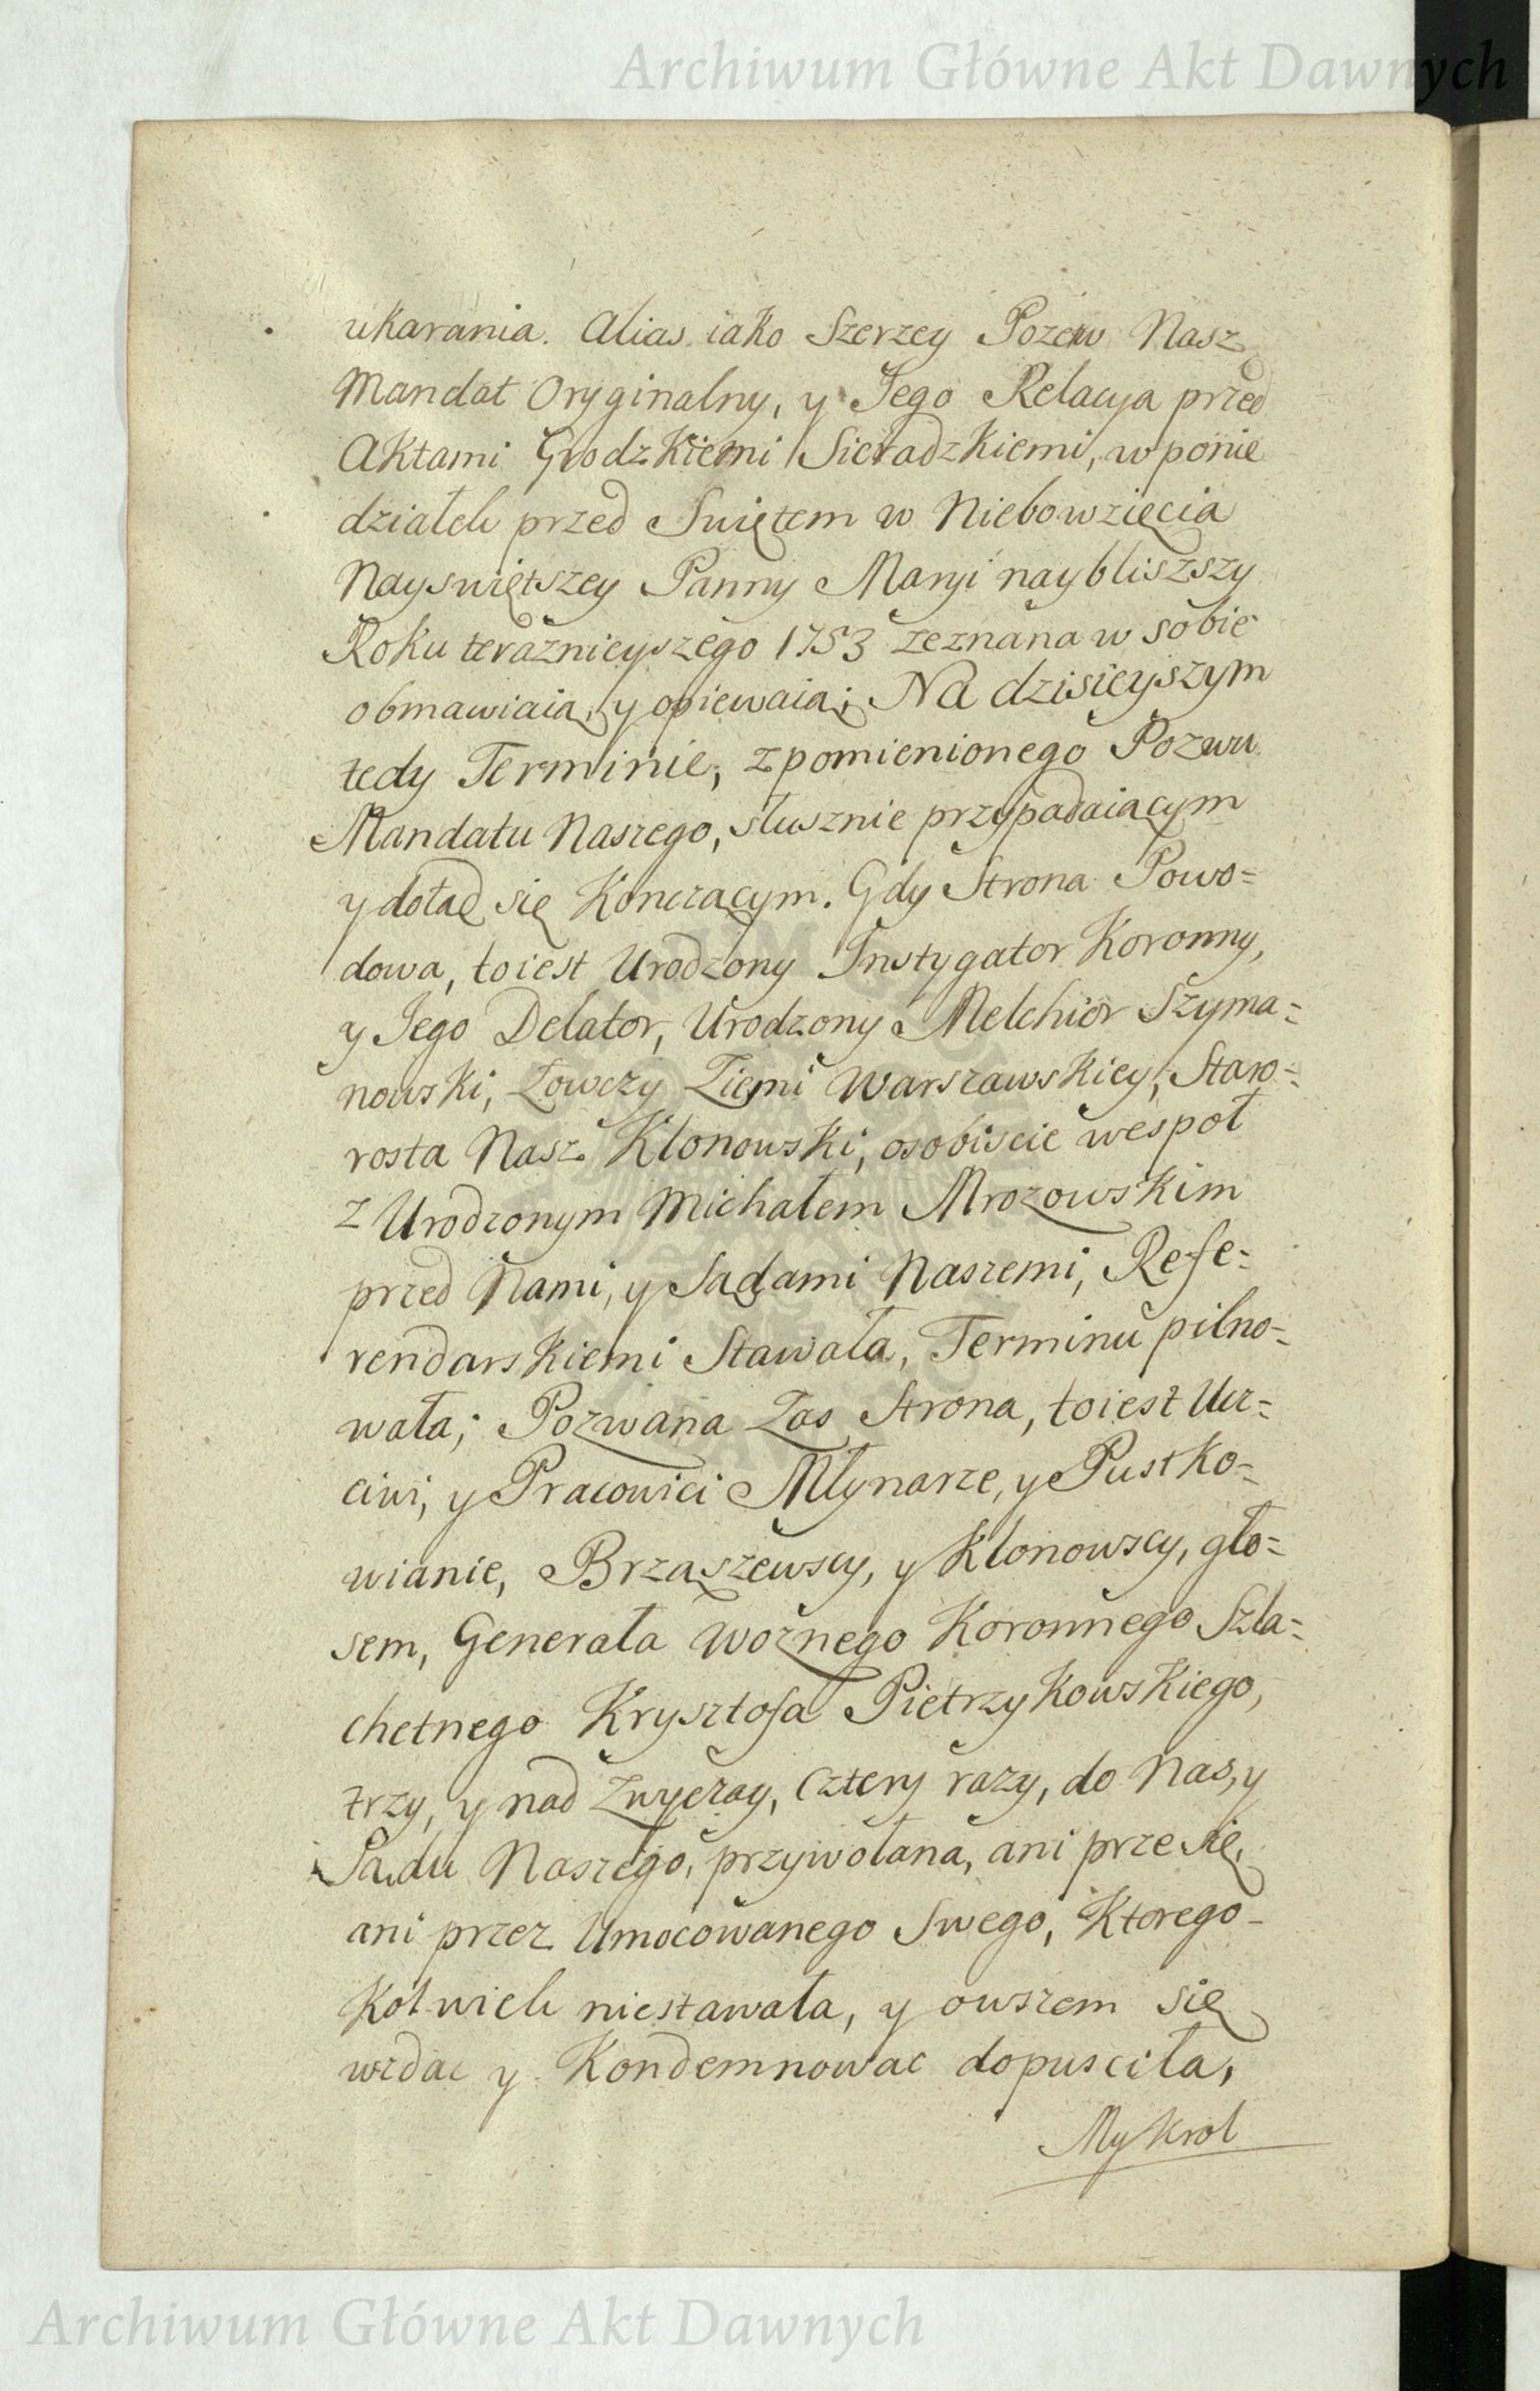 Archiwum Główne Akt Dawnych
ukarania. Alias iako Szerzey Pozew Nasz
Mandat Oryginalny, y Jego Relacya przed
Aktami Grodzkiemi Sieradzkiemi, w ponie
działek przed Swiętem w Niebowzięcia
Nayswiętszey Panny Maryi naybliszszy
Roku teraznieyszego 1753 zeznana w sobie
obmawiaią, y opiewaią; Na dzisieyszym
tedy Terminie, z pomienionego Pozwu
Mandatu Naszego, słusznie przypadaiącym
y dotąd się Konczącym. Gdy Strona Powo=
dowa, toiest Urodzony Instygator Koronny,
y Jego Delator, Urodzony Melchior Szyma=
nowski, Łowczy Ziemi Warszawskiey, Staro=
rosta Nasz Klonowski, osobiscie wespoł
z Urodzonym Michałem Mrozowskim
przed Nami, y Sądami Naszemi, Refe=
rendarskiemi Stawała, Terminu pilno=
wała; Pozwana Zas Strona, toiest Ucz=
ciwi, y Pracowici Młynarze, y Pustko=
wianie, Brzączewscy, y Klonowscy, gło=
sem, Generała Woznego Koronnego Szla=
chetnego Krysztofa Pietrzykowskiego,
trzy, y nad Zwyczay, Cztery razy, do Nas, y
Sądu Naszego, przywołana, ani prze się,
ani przez Umocowanego Swego, Ktorego-
Kolwiek niestawała, y owszem się
wzdac y Kondemnowac dopusciła,
My Krol
Archiwum Główne Akt Dawnych